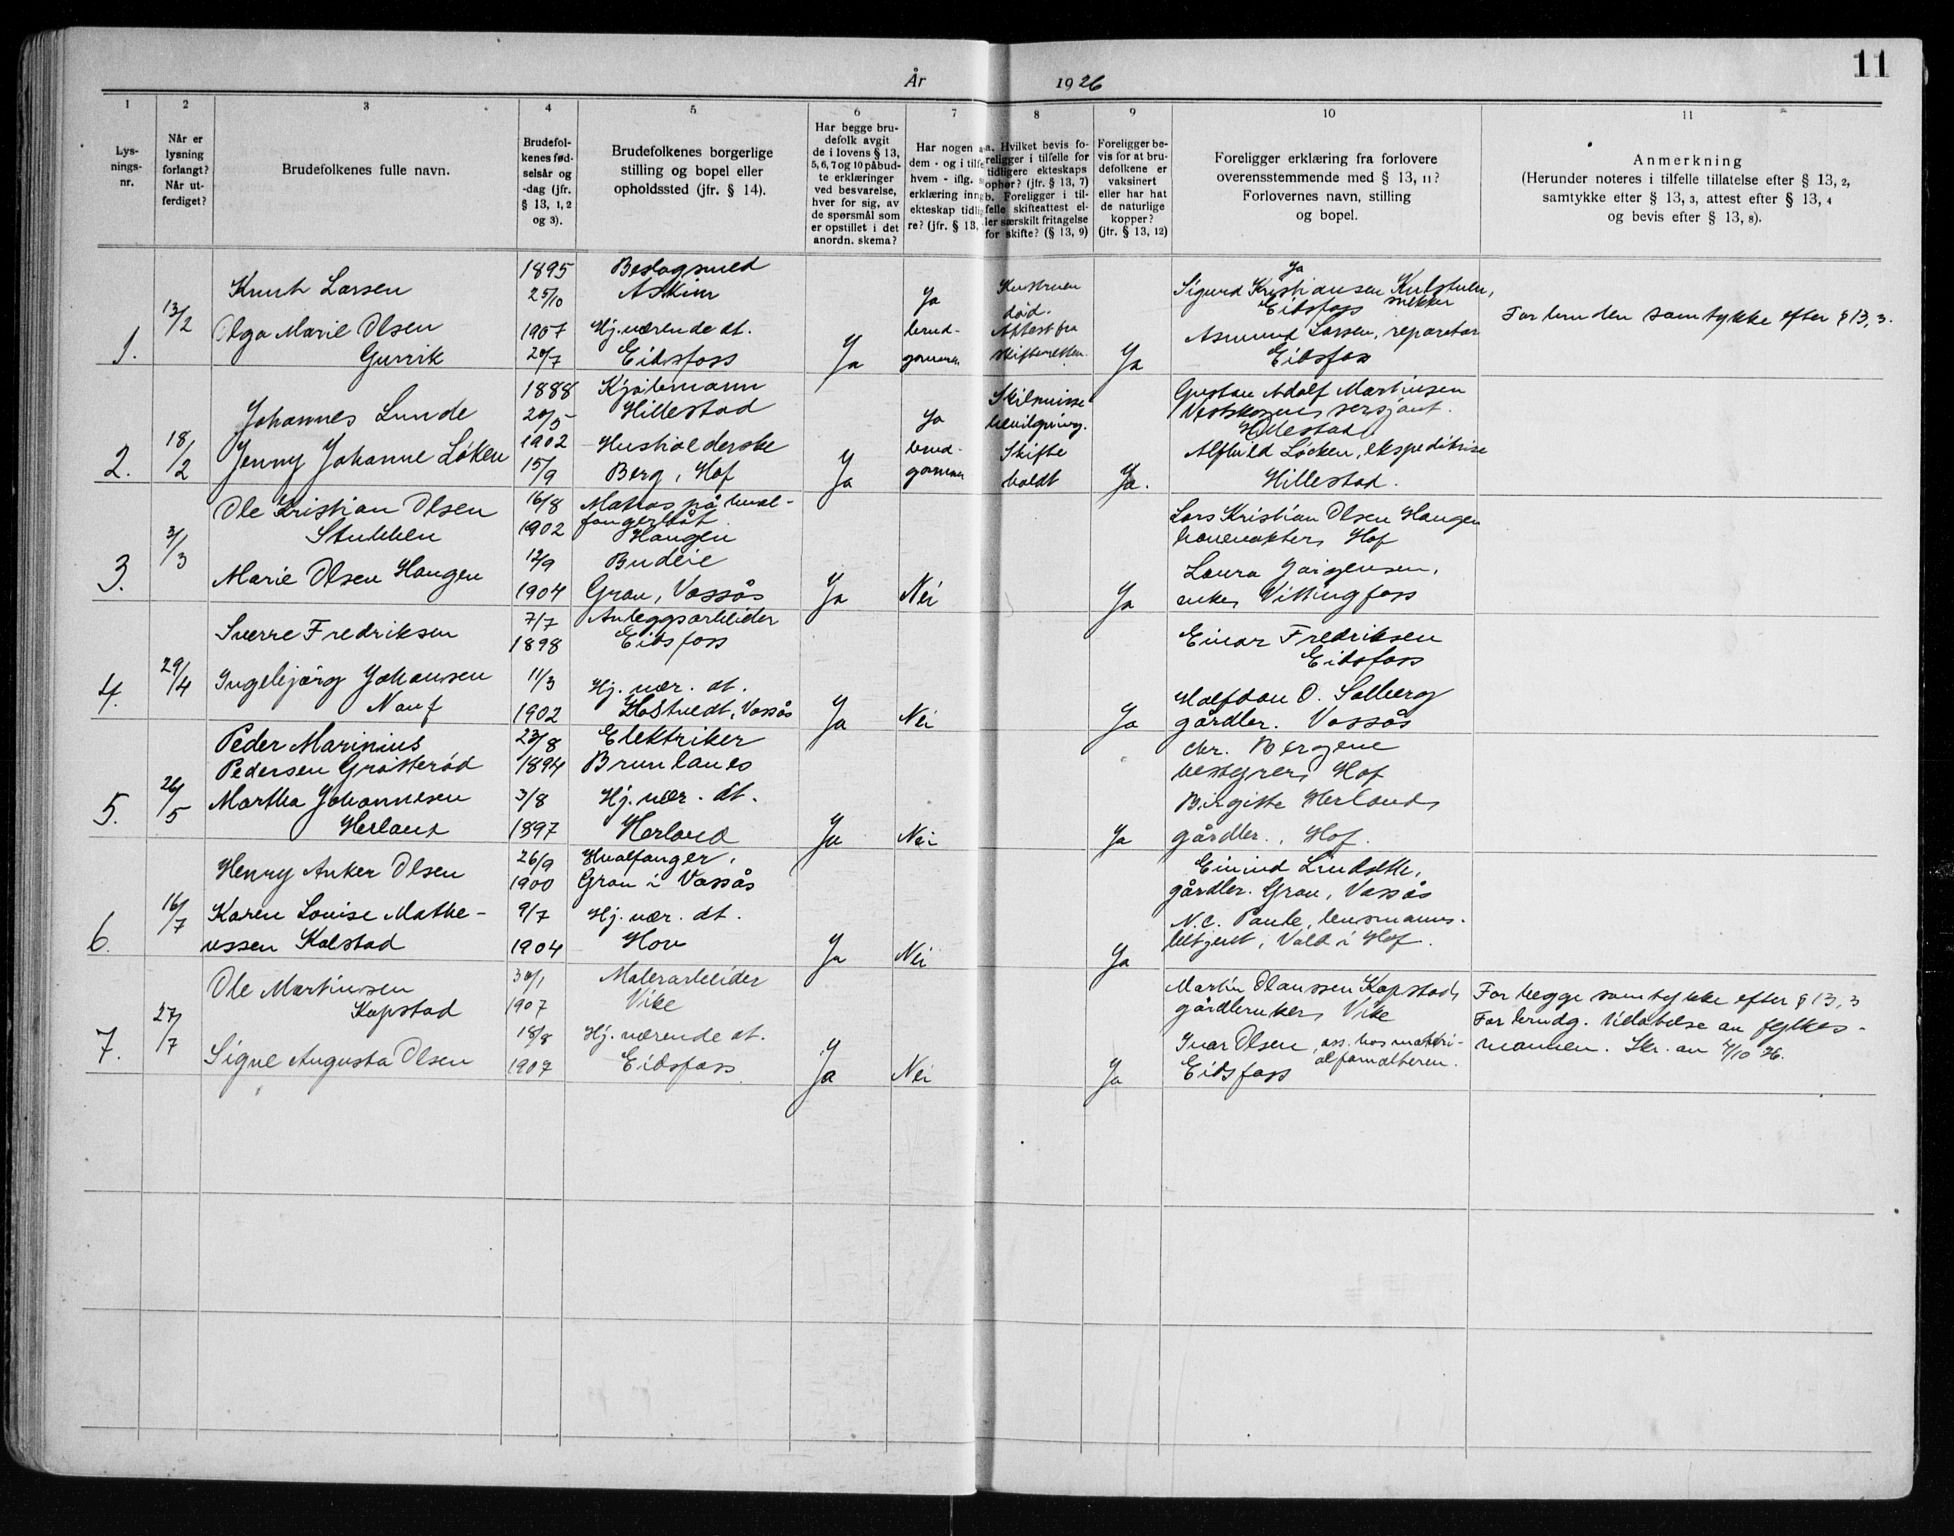 11
År 1926
1 2 3 4 5 6 7 8 9 10 11
Lys-
nings-
nr.
Når er
lysning
forlangt?
Når ut-
ferdiget?
Brudefolkenes fulle navn.
Brudefol-
kenes fød-
selsår og
-dag (jfr.
§ 13, 1, 2
og 3).
Brudefolkenes borgerlige
stilling og bopel eller
opholdssted (jfr. § 14).
Har begge bru-
defolk avgit
de i lovens § 13,
5, 6, 7 og 10 påbud-
te erklæringer
ved besvarelse,
hver for sig, av
de spørsmål som
er opstillet i det
anordn. skema?
Har nogen a
dem - og i tilfe
hvem - iflg. s
erklæring inng
ekteskap tidlig
re? (jfr. § 13,
a. Hvilket bevis fo-
religger i tilfelle for
tidligere ekteskaps
ophør? (jfr. § 13, 7)
b. Foreligger i til-
felle skifteattest el-
ler særskilt fritagelse
for skifte? (§ 13, 9)
Foreligger be-
vis for at bru-
defolkene er
vaksinert
eller har hat
de naturlige
kopper?
(jfr. § 13, 12)
Foreligger erklæring fra forlovere
overensstemmende med § 13, 11?
Forlovernes navn, stilling
og bopel.
Anmerkning
(Herunder noteres i tilfelle tillatelse efter § 13, 2,
samtykke efter § 13, 3, attest efter § 13, 4
og bevis efter § 13, 8).
1.
13/2
Knut Larsen
Olga Marie Olsen
Gurrik
1895
25/10
1907
20/7
Beslagsmed
Askim
Hj. værende dt.
Eidsfoss
Ja
Ja
brud-
gommen
Hustruen
død.
Attest fra
skifteretten.
Ja
Ja
Sigurd Kristiansen Kulstulen,
Eidsfoss snekker
Asmund Larsen, reparatør
Eidsfoss
For bruden samtykke efter § 13, 3.
2.
18/2
Johannes Lunde
Jenny Johanne Løken
1888
20/5
1902
15/9
Kjøbmann
Hillestad
Husholderske
Berg, Hof
Ja
Ja
brud-
gommen
Skilmisse
bevilgning.
Skifte
holdt
Ja.
Gustav Adolf Martinsen
sersjant.
Hillestad.
Alfhild Løcken, ekspeditrise
Hillestad.
3.
3/3
Ole Kristian Olsen
Stubben
Marie Olsen Haugen
16/8
1902
12/9
1904
Matros på hval-
fangerbåt.
Haugen
Budeie
Grau, Vassås
Ja
Nei
Ja
Lars Kristian Olsen Haugen
banevokter, Hof
Laura Jørgensen,
enke, Vittingfoss
4.
29/4
Sverre Fredriksen
Ingebjørg Johansen
Nauf
7/7
1898
11/3
1902
Anleggsarbeider
Eidsfoss
Hj. vær. dt.
Hostvedt, Vassås
Ja
Nei
Ja
Einar Fredriksen
Eidsfoss
Halfdan O. Solberg
gårdbr. Vassås
5.
26/5
Peder Marinius
Pedersen Grøtterød
Martha Johannesen
Herland
23/8
1894
3/8
1897
Elektriker
Brunlanes
Hj. vær. dt.
Herland
Ja
Nei
Ja
Chr. Bergene
bestyrer, Hof
Birgitte Herland,
gårdbr., Hof.
6.
16/7
Henry Anker Olsen
Karen Louise Mathe-
ussen Kolstad
26/9
1900
9/7
1904
Hvalfanger,
Grau i Vassås
Hj. vær. dt.
Hov
Ja
Nei
Ja
Eivind Lindseth,
gårdbr. Grau, Vassås
N. C. Paule, lensmanns-
betjent, Vold i Hof.
7.
27/7
Ole Martinsen
Kopstad
Signe Augusta Olsen
30/1
1907
18/8
1907
Malerarbeider
Vike
Hj. værende dt.
Eidsfoss
Ja
Nei
Ja
Martin Olaussen Kopstad,
gårdbruker, Vike
Ivar Olsen, ass. hos materi-
alforvalteren.
Eidsfoss
For begge samtykke efter § 13, 3
For brudg. tillatelse av fylkes-
mannen. Skr. av 4/10 26.